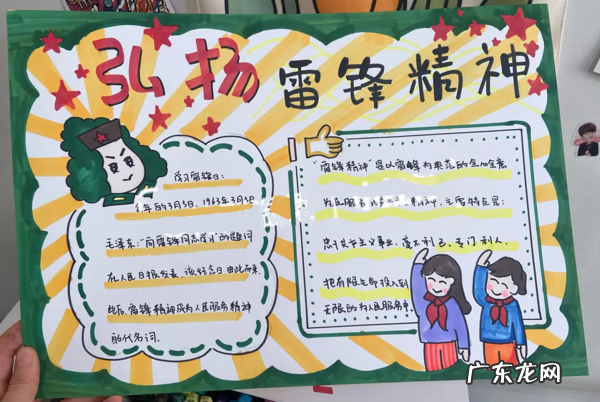 弘扬 雷锋精神
学习雷锋日:
年的3月5日, 1963年3月5日
毛泽东:"向雷锋同志学习"的题词
在人民日报发表,该纪念日由此而来
此后,雷锋精神成为人民服务精神
的代名词.
"雷锋精神"是以雷锋为典范的全心全意
为民服务
忠于共产主义事业,毫不利己、专门利人.
把有限生命投入到
无限的为人民服务中
广东龙网